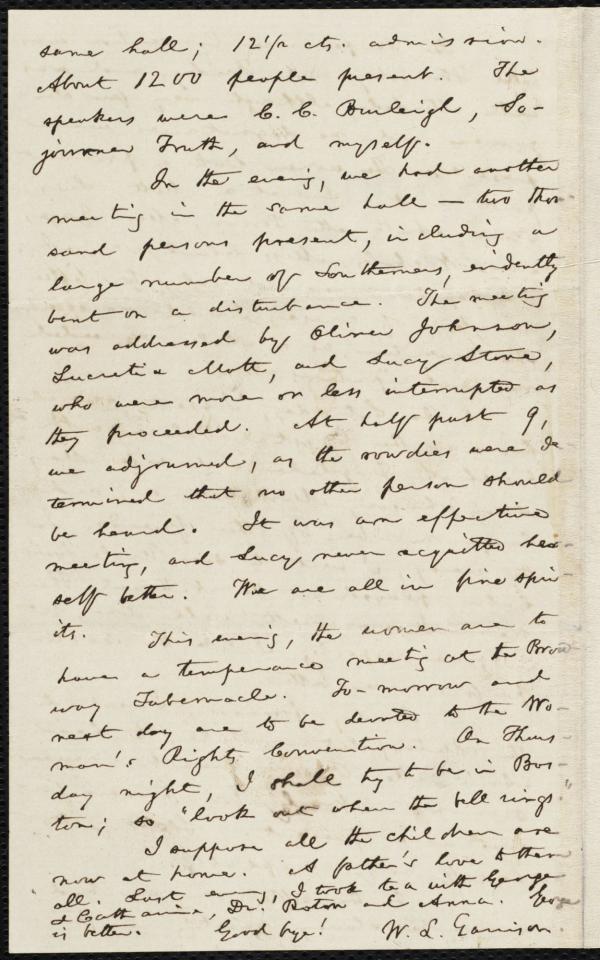 same hall; 12 1/2 cts. admission.
About 1200 people present. The
speakers were C. C. Burleigh, So-
journer Truth, and myself.
In the evening, we had another
meeting in the same hall — two thou-
sand persons present, including a
large number of Southerners, evidently
bent on a disturbance. The meeting
was addressed by Oliver Johnson,
Lucretia Mott, and Lucy Stone,
who were more or less interrupted as
they proceeded. At half past 9,
we adjourned, as the rowdies were de
termined that no other person should
be heard. It was an effective
meeting, and Lucy never acquitted her-
self better. We are all in fine spir-
its.
This evening, the women are to
have a temperance meeting at the Broad
way Tabernacle. To-morrow and
next day are to be devoted to the Wo-
man's Rights Convention. On Thurs-
day night, I shall try to be in Bos-
ton; so "look out when the bell rings."
I suppose all the children are
now at home. A father's love to them
all. Last evening, I took tea with George
& Catharine, Dr. and Anna. George
is better. Good bye! W. L. Garrison.